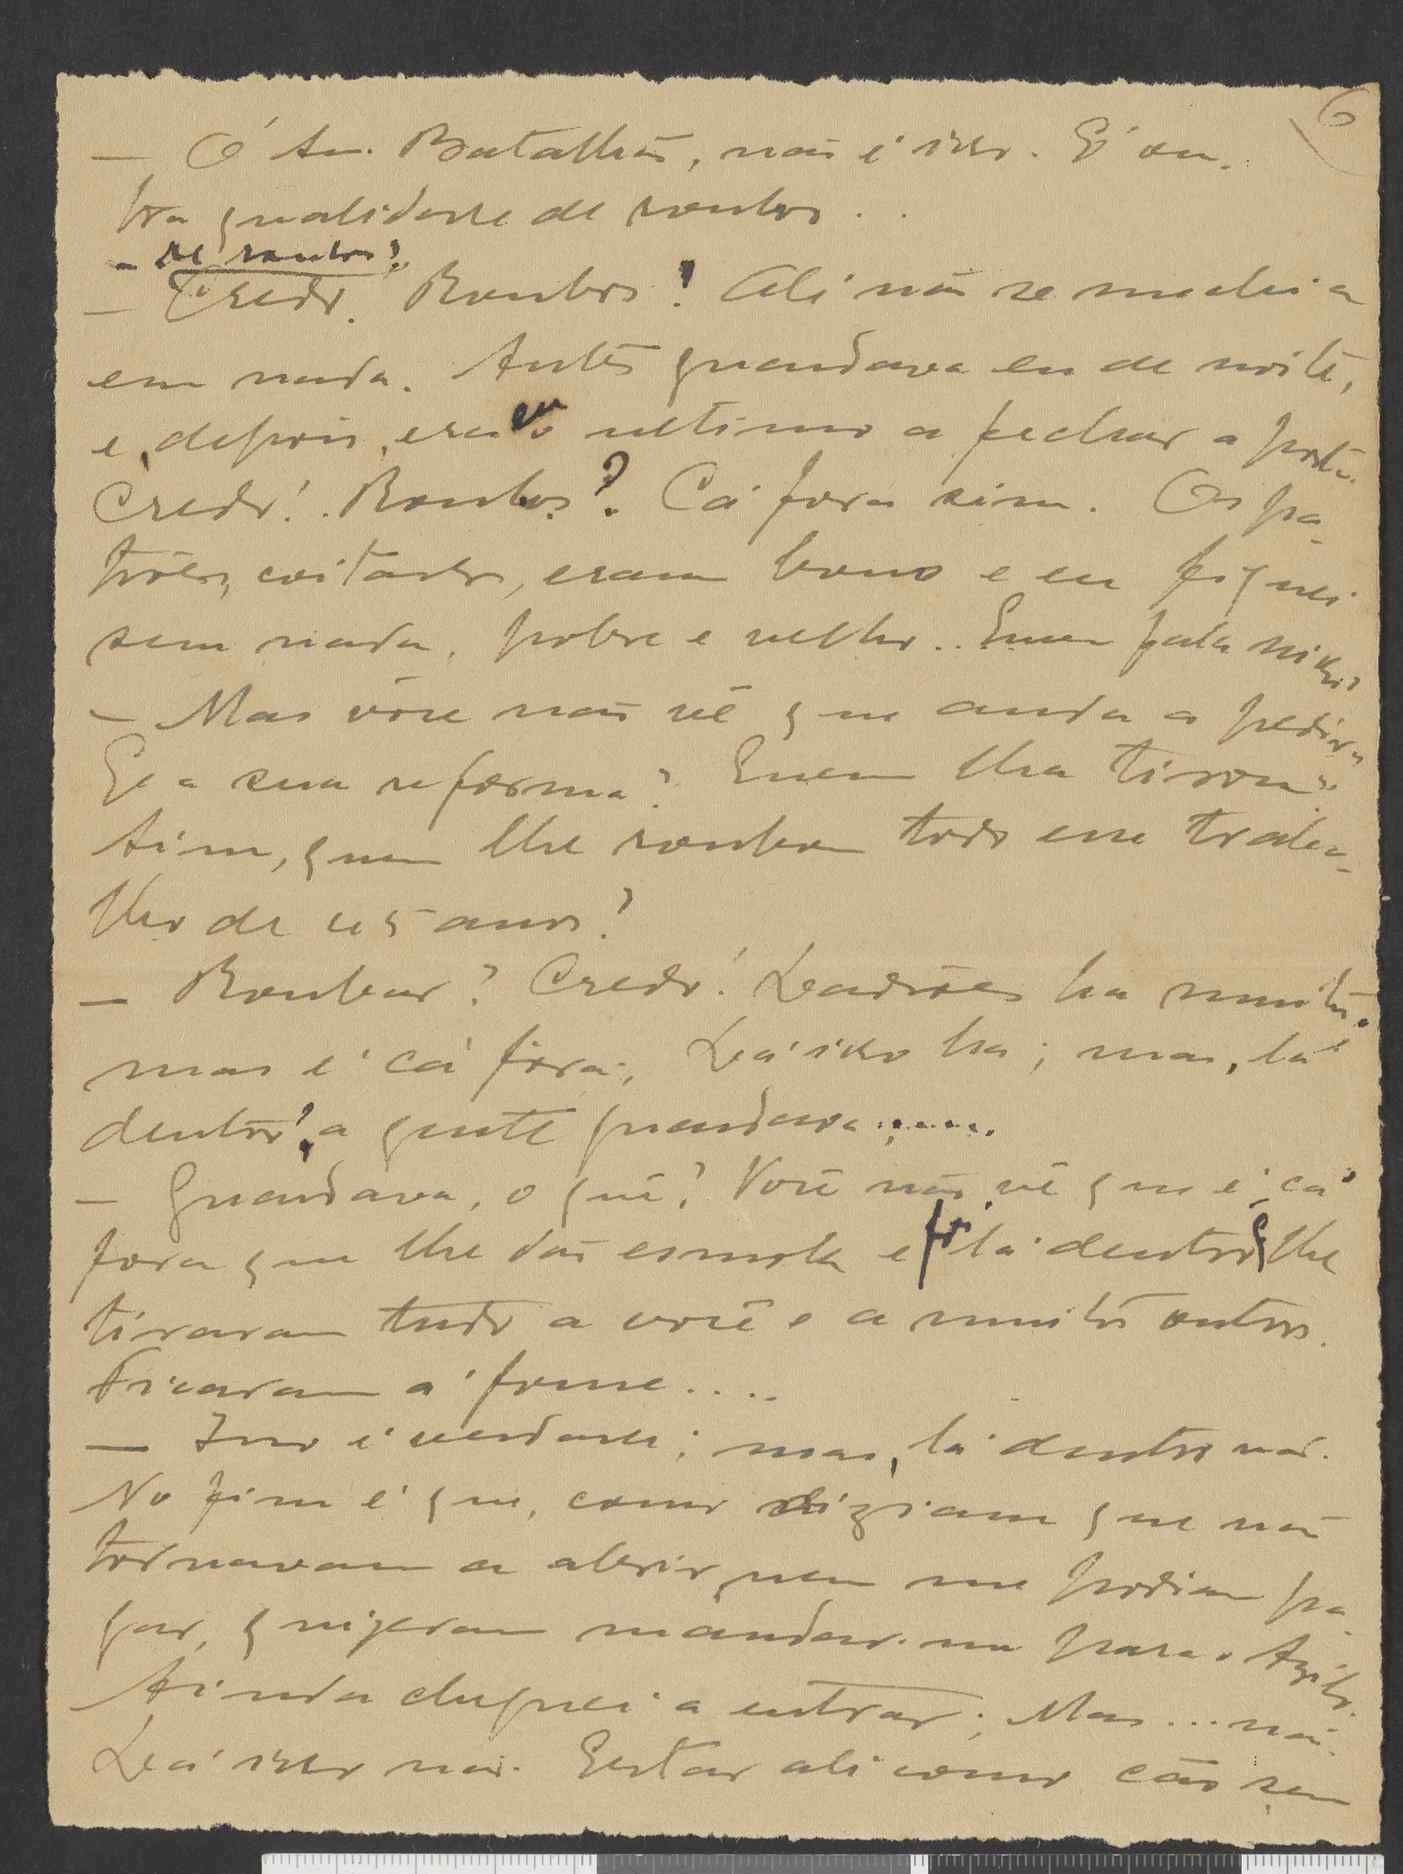 6
— Ó Sr. Batalhão, não é isso. É ou-
tra qualidade de roubos . .
- De roubos?
— Credo. Roubos! Ali não se mechia
em nada. Antes guardava eu de noite,
e, depois, era eu o ultimo a fechar a porta.
Credo! . Roubos? Cá fora sim. Os pa-
trões, coitados, eram bons e eu fiquei
sem nada, pobre e velho .. Quem fala nisso?
— Mas você não vê que anda a pedir?
E a sua reforma? Quem lha tirou?
Sim, quem lhe roubou todo esse traba-
lho de 45 anos?
— Roubar? Credo! Ladrões ha muitos,
mas é cá fóra. Lá isso ha; mas, lá
dentro? a gente guardava......
— Guardava, o quê? Você não vê que é cá
fora que lhe dão esmola e foi lá dentro q lhe
tiraram tudo a você e a muitos outros.
Ficaram á fome....
— Isso é verdade; mas, lá dentro não.
No fim é que, como diziam que não
tornavam a abrir, nem me podiam pa-
gar, quizeram mandar-me para o Azilo.
Ainda cheguei a entrar; Mas ... não.
Lá isso não. Estar ali como cão sem